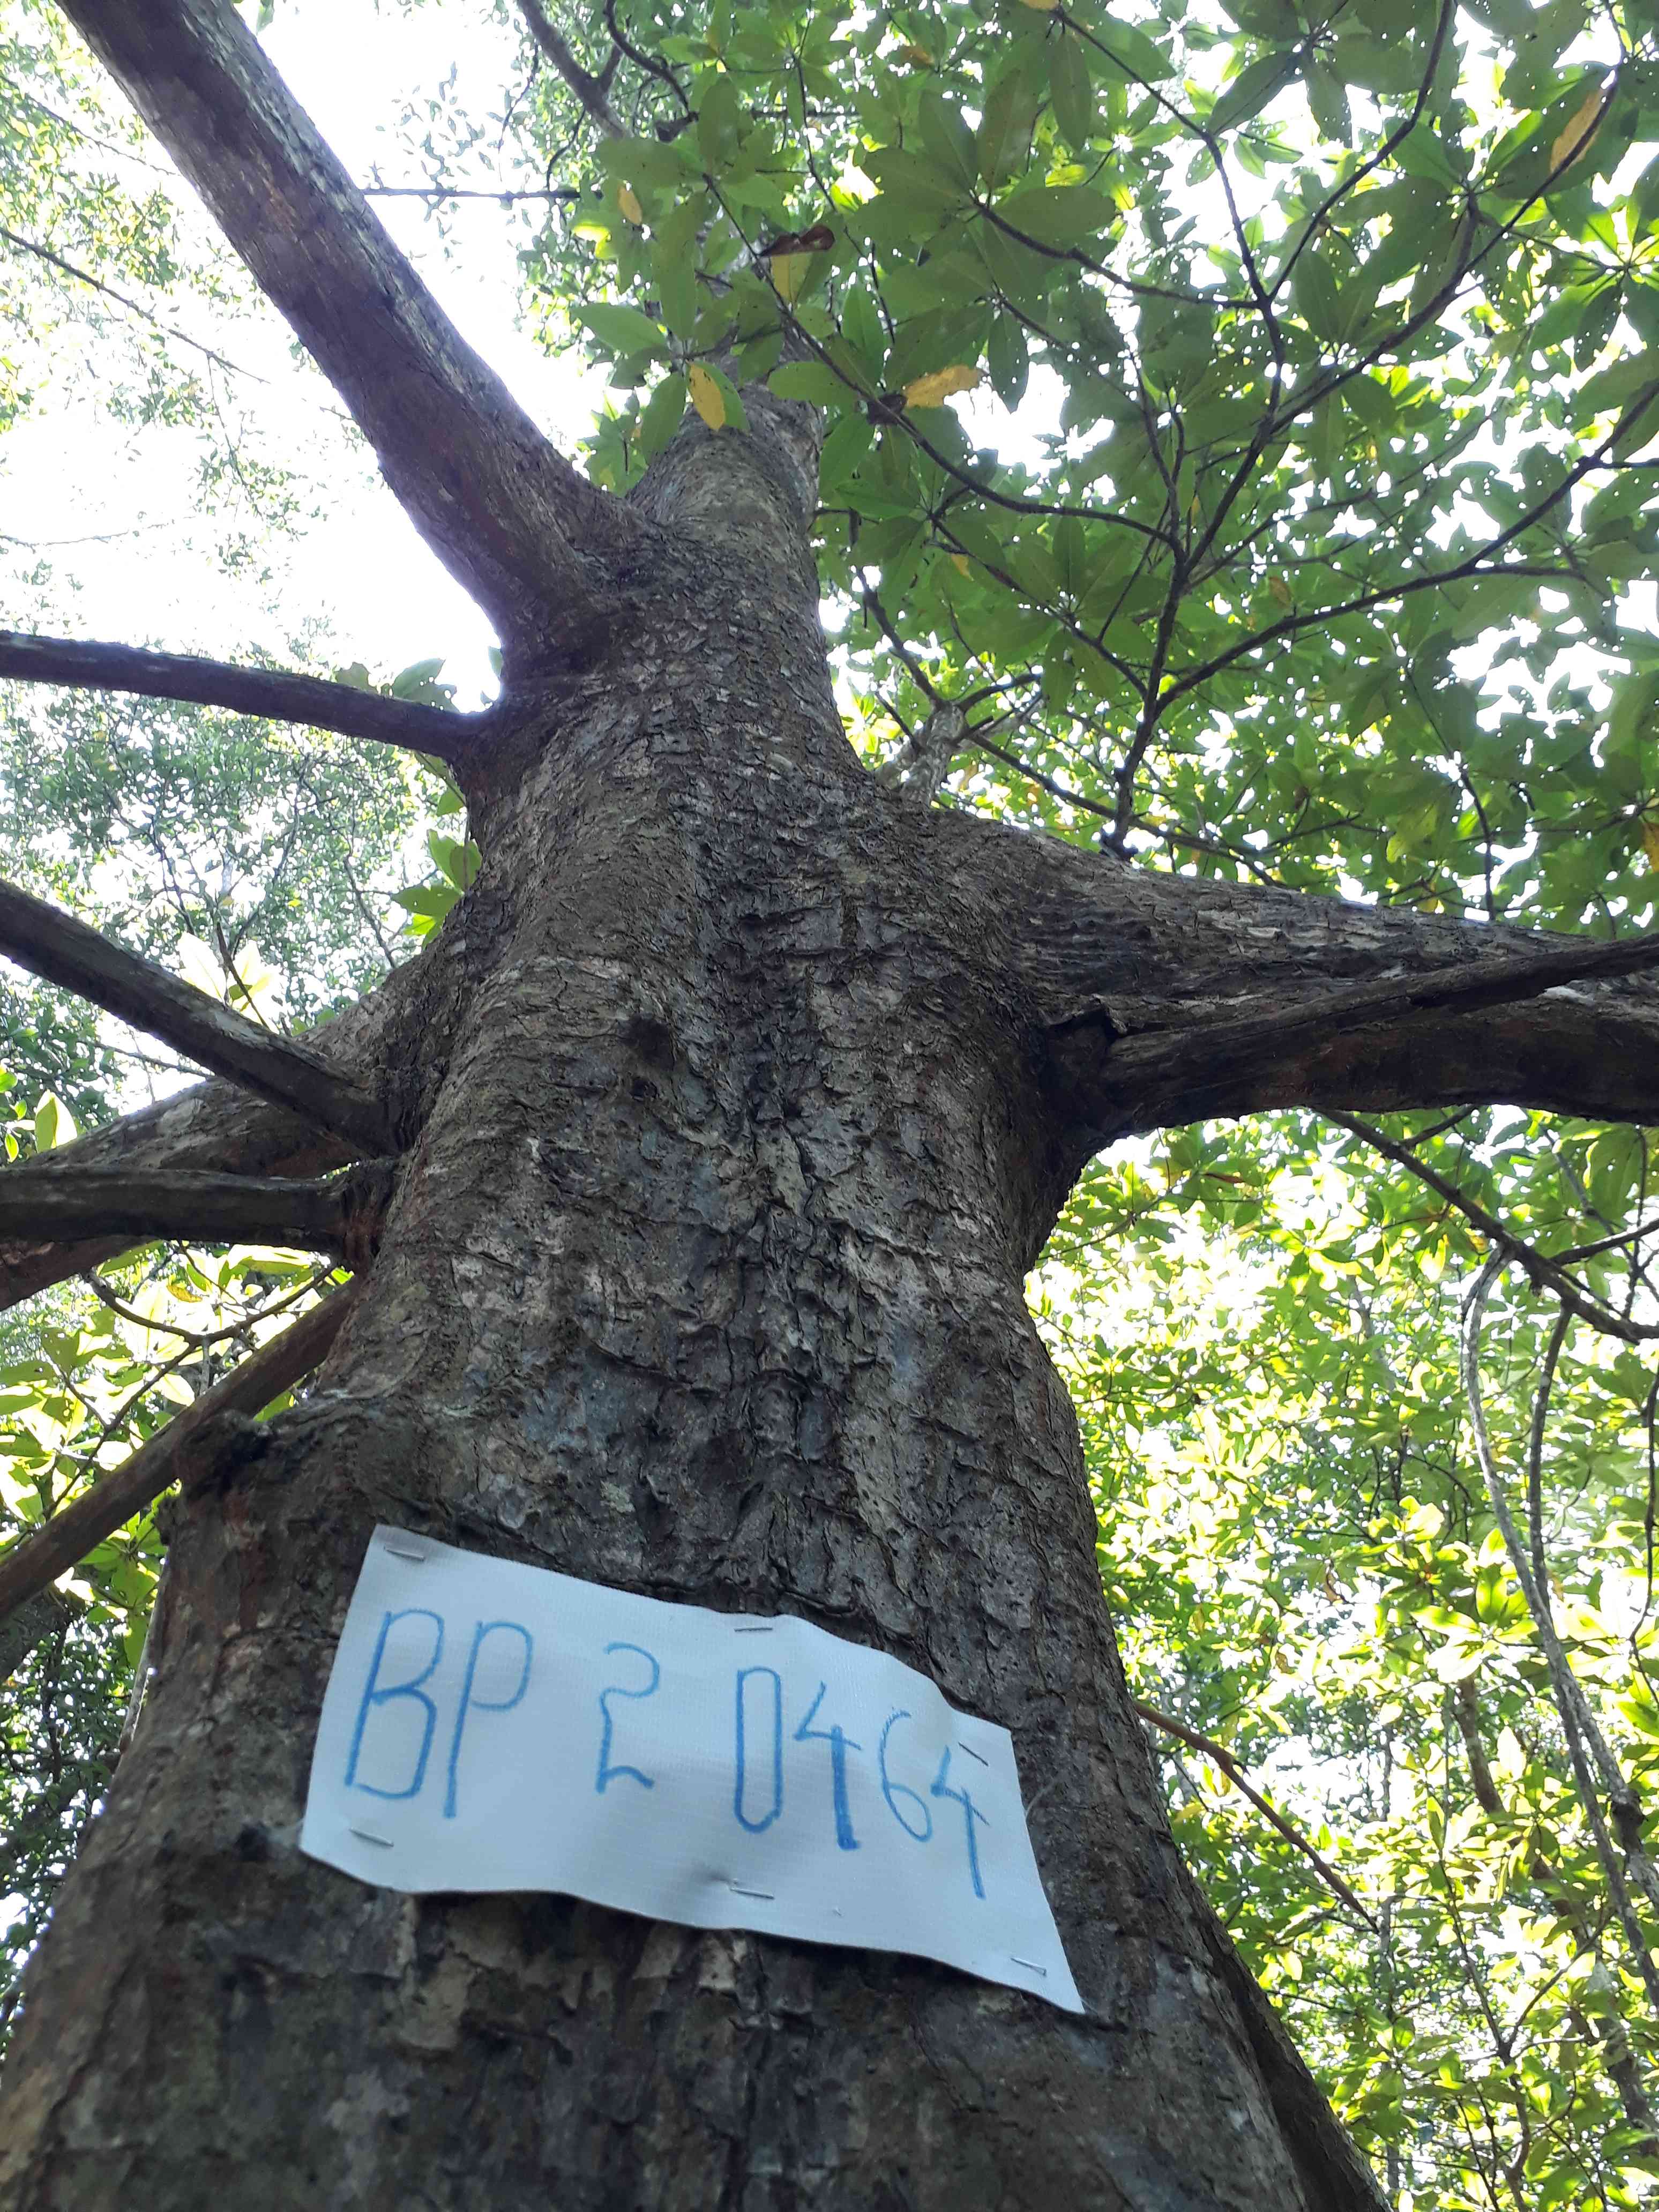 BP 2 0464